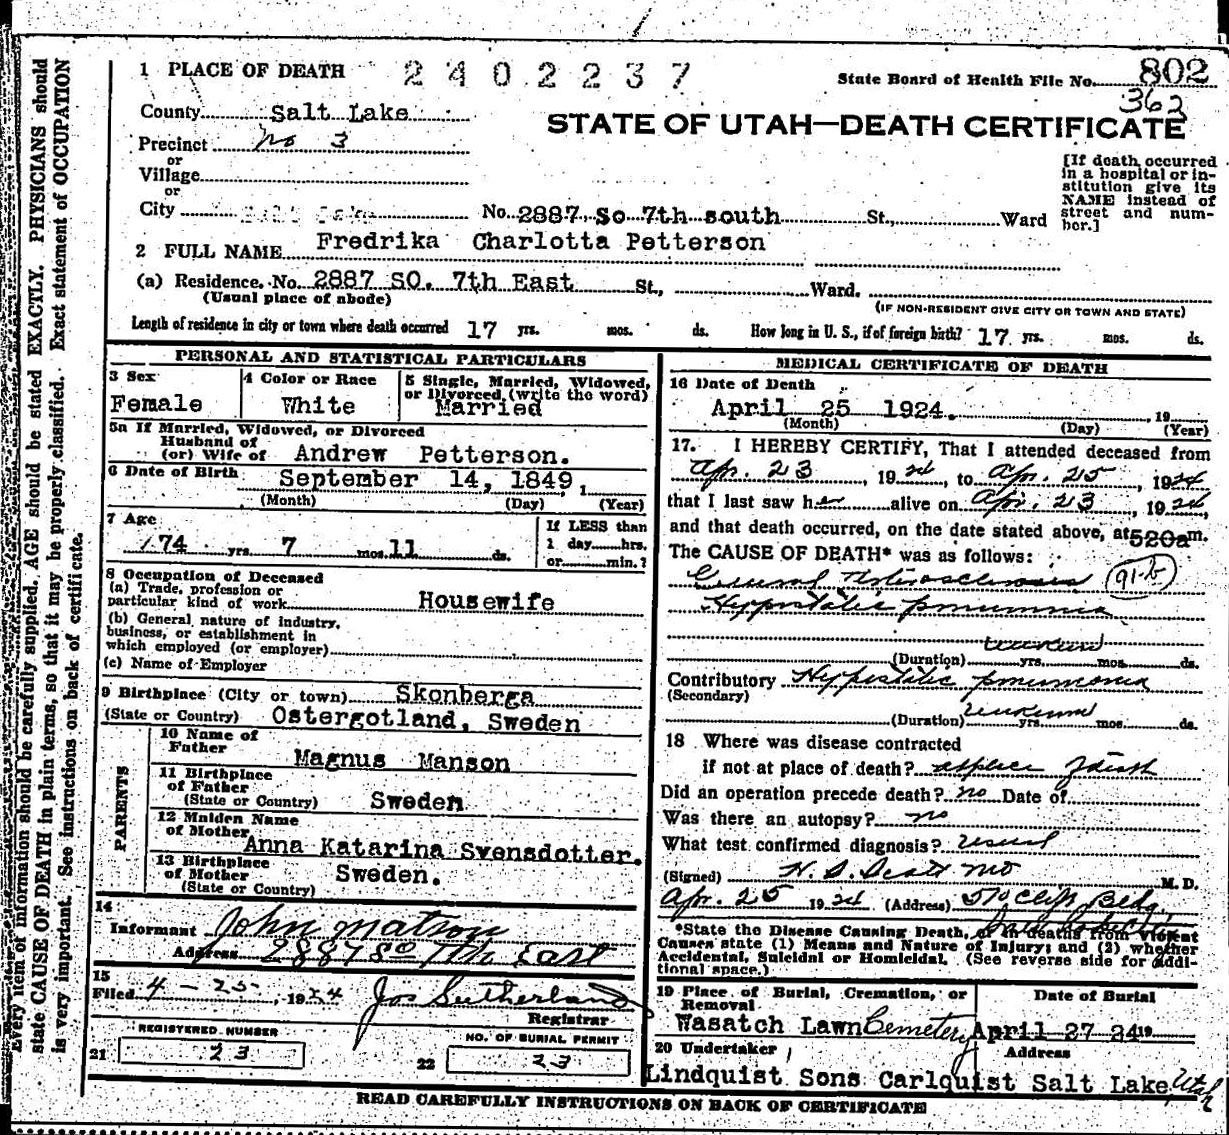 1 PLACE OF DEATH 2402237
State Board of Health File No. 802
362
County Salt Lake
STATE OF UTAH—DEATH CERTIFICATE
Precinct No 3
or
Village
or
City Salt Lake No. 2887 So 7th south St., Ward
[If death occurred in a hospital or institution give its NAME instead of street and number.]
2 FULL NAME Fredrika Charlotta Petterson
(a) Residence. No. 2887 SO. 7th East St., Ward.
(Usual place of abode) (IF NON-RESIDENT GIVE CITY OR TOWN AND STATE)
Length of residence in city or town where death occurred 17 yrs. mos. ds. How long in U. S., if of foreign birth? 17 yrs. mos. ds.
PERSONAL AND STATISTICAL PARTICULARS
3 Sex
Female
4 Color or Race
White
5 Single, Married, Widowed, or Divorced (write the word)
Married
5a If Married, Widowed, or Divorced
Husband of
(or) Wife of Andrew Petterson.
6 Date of Birth September 14, 1849, 1
(Month) (Day) (Year)
7 Age
74 yrs. 7 mos. 11 ds.
If LESS than
1 day......hrs.
or......min.?
8 Occupation of Deceased
(a) Trade, profession or
particular kind of work Housewife
(b) General nature of industry,
business, or establishment in
which employed (or employer)
(c) Name of Employer
9 Birthplace (City or town) Skonberga
(State or Country) Ostergotland, Sweden
PARENTS
10 Name of
Father Magnus Manson
11 Birthplace
of Father
(State or Country) Sweden
12 Maiden Name
of Mother
Anna Katarina Svensdotter.
13 Birthplace
of Mother Sweden.
(State or Country)
14
Informant John Matson
Address 2887 So 7th East
15
Filed 4-25-, 1924 Jos Sutherland
Registrar
REGISTERED NUMBER
21 23
NO. OF BURIAL PERMIT
22 23
MEDICAL CERTIFICATE OF DEATH
16 Date of Death
April 25 1924. 19
(Month) (Day) (Year)
17. I HEREBY CERTIFY, That I attended deceased from
Apr. 23, 1924, to Apr. 25, 1924
that I last saw her alive on Apr. 23, 1924,
and that death occurred, on the date stated above, at 520am.
The CAUSE OF DEATH* was as follows:
General Arteriosclerosis 91-b
Hypostatic pneumonia
unknown
(Duration) yrs. mos. ds.
Contributory Hypostatic pneumonia
(Secondary)
unknown
(Duration) yrs. mos. ds.
18 Where was disease contracted
if not at place of death? at place of death
Did an operation precede death? no Date of
Was there an autopsy? no
What test confirmed diagnosis? usual
(Signed) H. S. Scott MD M. D.
Apr. 25 1924 (Address) 510 Clift Bldg.
*State the Disease Causing Death, or in deaths from Violent
Causes state (1) Means and Nature of Injury; and (2) whether
Accidental, Suicidal or Homicidal. (See reverse side for additional space.)
19 Place of Burial, Cremation, or Removal
Wasatch Lawn Cemetery
Date of Burial
April 27 24 19
20 Undertaker Address
Lindquist Sons Carlquist Salt Lake, Utah
READ CAREFULLY INSTRUCTIONS ON BACK OF CERTIFICATE
Every item of information should be carefully supplied. AGE should be stated EXACTLY. PHYSICIANS should
state CAUSE OF DEATH in plain terms, so that it may be properly classified. Exact statement of OCCUPATION
is very important. See instructions on back of certificate.